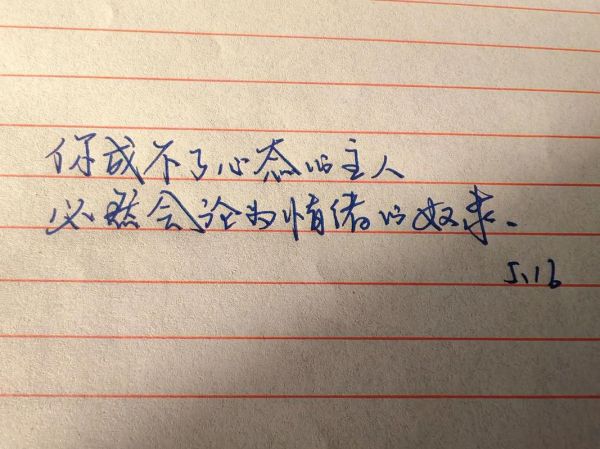 你成不了心态的主人
必然会沦为情绪的奴隶.
5.16